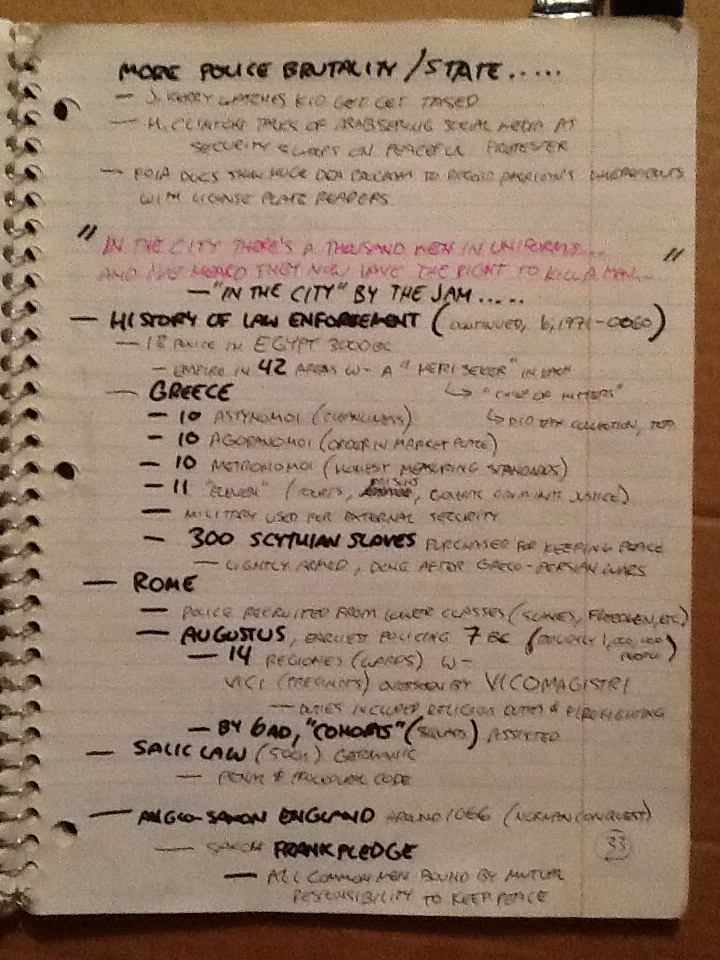 MORE POLICE BRUTALITY/STATE.....
- J. KERRY WATCHES KID GET GET TASED
- H. CLINTON TALKS OF ARAB SPRING SOCIAL MEDIA AS
SECURITY SWOOPS ON PEACEFUL PROTESTER
- FOIA DOCS SHOW HUGE DEA PROGRAM TO RECORD AMERICAN'S WHEREABOUTS
WITH LICENSE PLATE READERS
" IN THE CITY THERE'S A THOUSAND MEN IN UNIFORMS... "
AND I'VE HEARD THEY NOW HAVE THE RIGHT TO KILL A MAN...
-"IN THE CITY" BY THE JAM.....
- HISTORY OF LAW ENFORCEMENT (CONTINUED, 6,1971-0060)
- 1st POLICE IN EGYPT 3000BC
- EMPIRE IN 42 AREAS W- A "HERI SEKER" IN EACH
- GREECE ↳ "CHIEF OF HITTERS"
- 10 ASTYNOMOI (CLEANLINESS) ↳ DID TAX COLLECTION, TOO
- 10 AGORANOMOI (ORDER IN MARKET PLACE)
- 10 METRONOMOI (HONEST MEASURING STANDARDS)
- 11 "ELEVEN" (COURTS, PRISONS, CRIMINAL JUSTICE)
- MILITARY USED FOR EXTERNAL SECURITY
- 300 SCYTHIAN SLAVES PURCHASED FOR KEEPING PEACE
- LIGHTLY ARMED, DONE AFTER GRECO-PERSIAN WARS
- ROME
- POLICE RECRUITED FROM LOWER CLASSES (SLAVES, FREEDMEN, ETC)
- AUGUSTUS, EARLIEST POLICING 7 BC (ROUGHLY 1,000,000 PEOPLE)
- 14 REGIONES (WARDS) W-
VICI (PRECINCTS) OVERSEEN BY VICOMAGISTRI
- DUTIES INCLUDED RELIGIOUS DUTIES & FIREFIGHTING
- BY 6AD, "COHORTS" (SQUADS) ASSISTED
- SALIC LAW (500s) GERMANIC
- PENAL & PROCEDURAL CODE
- ANGLO-SAXON ENGLAND AROUND 1066 (NORMAN CONQUEST)
- SAXON FRANKPLEDGE
- ALL COMMON MEN BOUND BY MUTUAL
RESPONSIBILITY TO KEEP PEACE
33